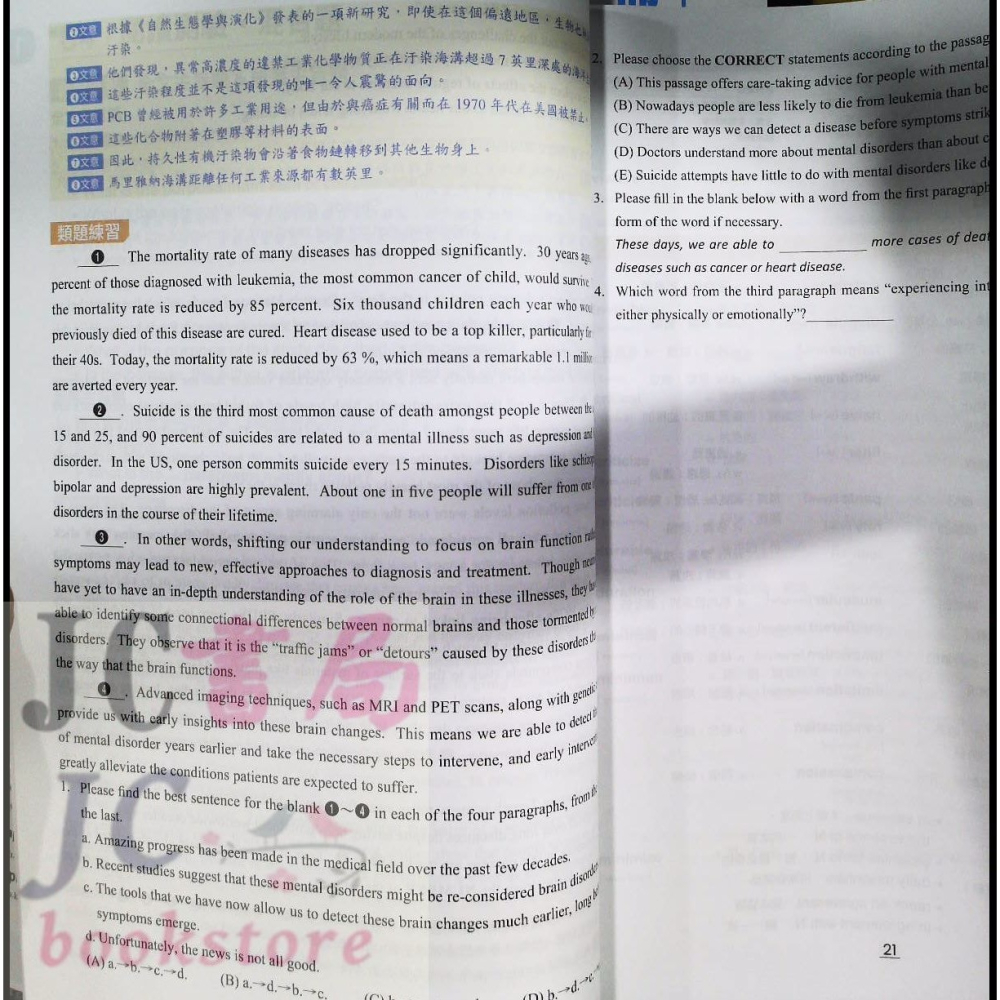 ❷文意 根據《自然生態學與演化》發表的一項新研究，即使在這個偏遠地區，生物也
汙染。
❸文意 他們發現，異常高濃度的違禁工業化學物質正在汙染海溝超過 7 英里深處的海洋
❹文意 這些汙染程度並不是這項發現的唯一令人震驚的面向。
❺文意 PCB 曾經被用於許多工業用途，但由於與癌症有關而在 1970 年代在美國被禁止。
❻文意 這些化合物附著在塑膠等材料的表面。
❼文意 因此，持久性有機汙染物會沿著食物鏈轉移到其他生物身上。
❽文意 馬里雅納海溝距離任何工業來源都有數英里。
類題練習
❶ The mortality rate of many diseases has dropped significantly. 30 years
percent of those diagnosed with leukemia, the most common cancer of child, would survive
the mortality rate is reduced by 85 percent. Six thousand children each year who
previously died of this disease are cured. Heart disease used to be a top killer, particularly
their 40s. Today, the mortality rate is reduced by 63 %, which means a remarkable 1.1
are averted every year.
❷ . Suicide is the third most common cause of death amongst people between the
15 and 25, and 90 percent of suicides are related to a mental illness such as depression and
disorder. In the US, one person commits suicide every 15 minutes. Disorders like
bipolar and depression are highly prevalent. About one in five people will suffer from one
disorders in the course of their lifetime.
❸ . In other words, shifting our understanding to focus on brain function
symptoms may lead to new, effective approaches to diagnosis and treatment. Though
have yet to have an in-depth understanding of the role of the brain in these illnesses, they
able to identify some connectional differences between normal brains and those tormented
disorders. They observe that it is the “traffic jams” or “detours” caused by these disorders
the way that the brain functions.
❹ . Advanced imaging techniques, such as MRI and PET scans, along with
provide us with early insights into these brain changes. This means we are able to detect
of mental disorder years earlier and take the necessary steps to intervene, and early
greatly alleviate the conditions patients are expected to suffer.
1. Please find the best sentence for the blank ❶～❹ in each of the four paragraphs, from
the last.
a. Amazing progress has been made in the medical field over the past few decades.
b. Recent studies suggest that these mental disorders might be re-considered brain
c. The tools that we have now allow us to detect these brain changes much earlier, long
symptoms emerge.
d. Unfortunately, the news is not all good.
(A) a.→b.→c.→d.
(B) a.→d.→b.→c.
(D) b.→d.→c.
2. Please choose the CORRECT statements according to the
(A) This passage offers care-taking advice for people with mental
(B) Nowadays people are less likely to die from leukemia than
(C) There are ways we can detect a disease before symptoms
(D) Doctors understand more about mental disorders than about
(E) Suicide attempts have little to do with mental disorders like
3. Please fill in the blank below with a word from the first paragraph
form of the word if necessary.
These days, we are able to ____________ more cases of
diseases such as cancer or heart disease.
4. Which word from the third paragraph means “experiencing
either physically or emotionally”?____________
21
JC書局
JC
bookstore